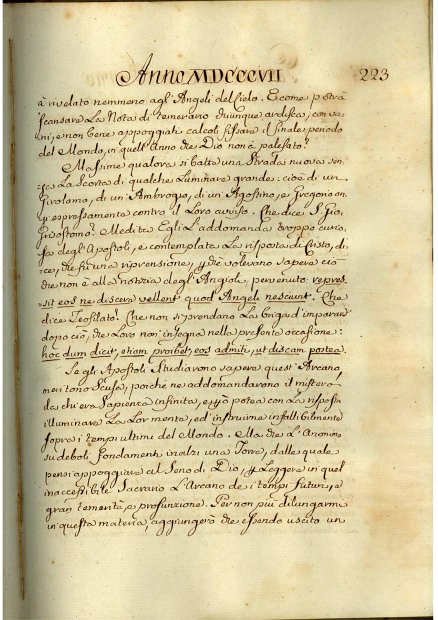 Anno MDCCCVII 223
à rivelato nemmeno agl'Angeli del Cielo. E come potrà
scansare La Nota di temerario chiunque ardisca, con va-
ni, e non bene appoggiati calcoli fissare il finale periodo
del Mondo, in quell'Anno che Dio non à palesato?
Massime qualora si batte una Strada nuova sen-
za La Scorta di qualche Luminare grande: cioè di un
Girolamo, di un'Ambrogio, di un'Agostino, e Gregorio an-
zi espressamente contro il Loro avviso. Che dice S. Gio.
Grisostomo? Medita Egli L'addomanda troppo curio-
sa degl'Apostoli, e contemplata La risposta di Cristo, di-
ce, che fù una riprensione, che volevano sapere ciò
che non è alla notizia degl'Angioli pervenuto: repres-
sit eos ne discere vellent quod Angeli nesciunt. Che
dice Teofilato? Che non si prendano La briga d'imparare
dopo ciò, che Loro non insegna nella presente occasione:
hoc dum dicit, etiam prohibet, eos admiti, ut discam postea.
Se gli Apostoli Studiavano sapere quest'Arcano
meritono Scusa, poichè ne addomandavono il mistero
da chi'era Sapienza infinita, e che potea con La risposta
illuminare La Lor mente, ed instruirne infallibilmente
sopra i tempi ultimi del Mondo. Ma che L'Anonimo
su deboli fondamenti inalzi una Torre, dalle quale
pensi appoggiare al Seno di Dio, Leggere in quel
inaccessibile Sacrario L'Arcano de i tempi futuri, è
gran temerità, e prosunzione. Per non più dilungarmi
in questa materia, aggiungerò che essendo uscito un